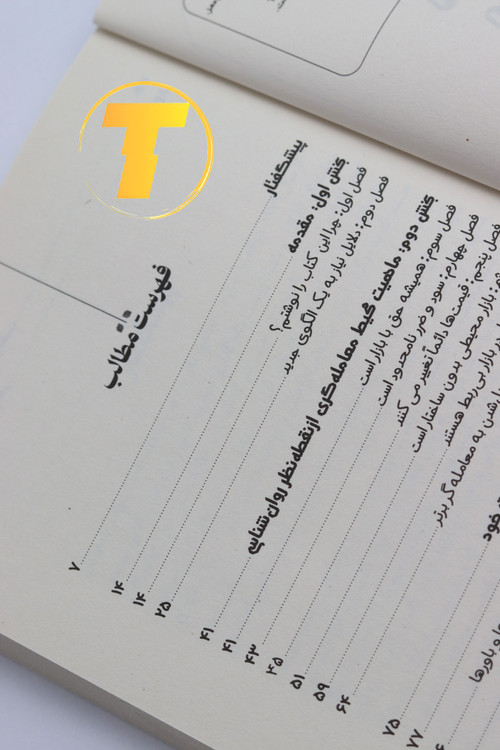 T
فهرست مطالب
پیشگفتار ۷
کنش اول: مقدمه ۱۴
فصل اول: چرا این کتاب را نوشتم؟ ۱۴
فصل دوم: دلایل نیاز به یک الگوی جدید ۲۵
کنش دوم: ماهیت محیط معامله‌گری از نقطه نظر روان شناسی ۴۱
فصل سوم: همیشه حق با بازار است ۴۱
فصل چهارم: سود و ضرر نامحدود است ۴۳
فصل پنجم: قیمت‌ها دائماً تغییر می کنند ۴۵
بازار محیطی بدون ساختار است ۵۱
در بازار بی ربط هستند ۵۹
شدن به معامله گر برتر ۶۴
خود ۷۵
۷۷
و باورها